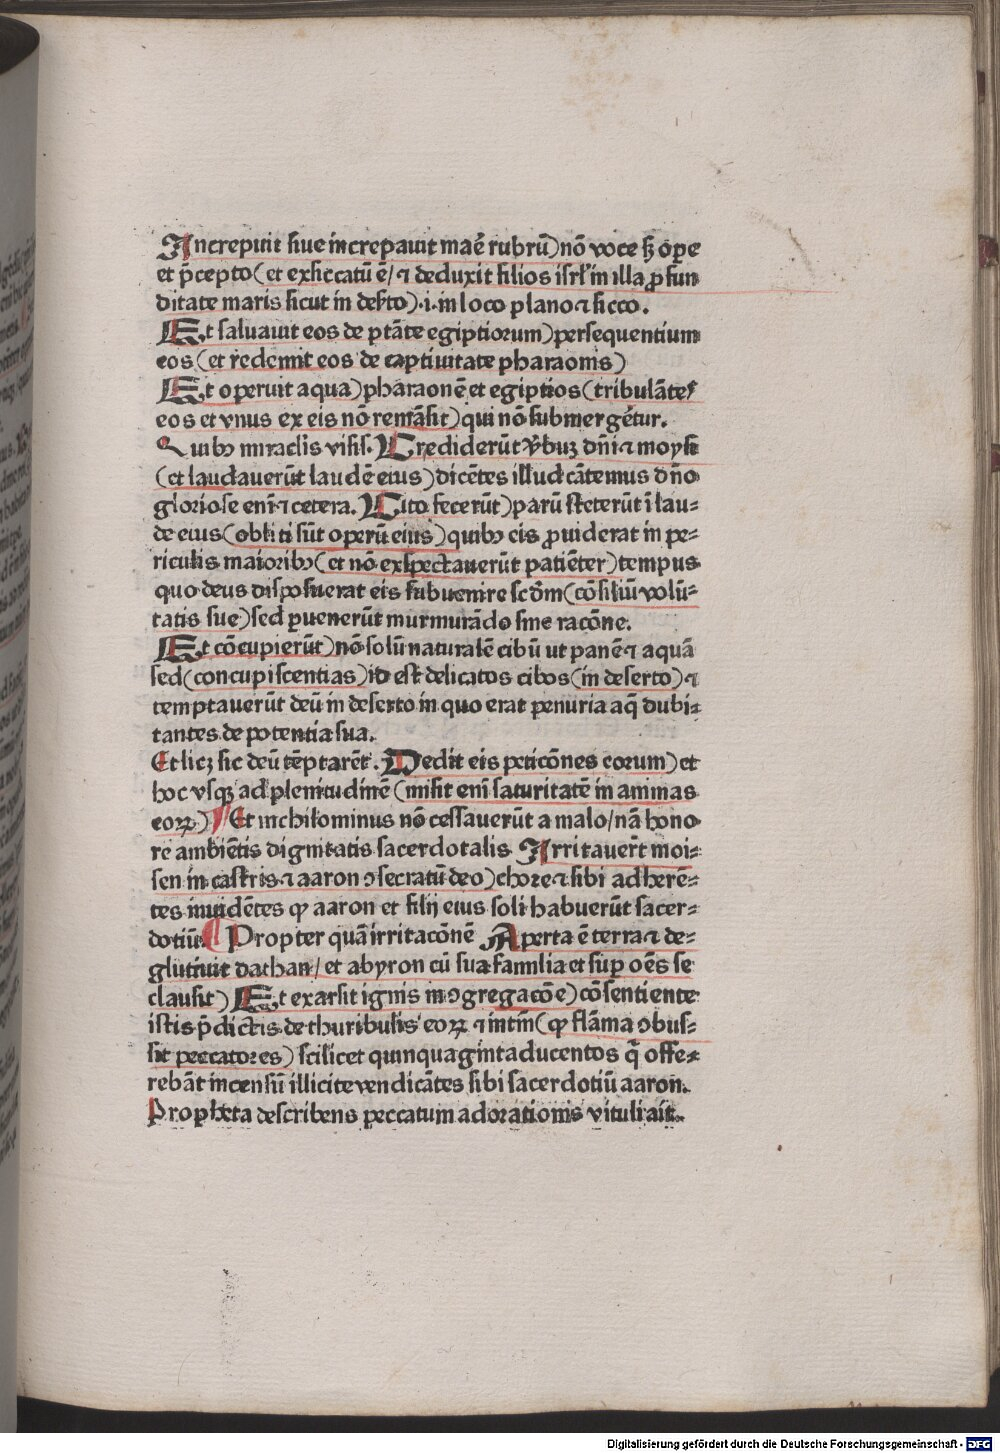 Increpuit siue increpauit maē rubrū) nō voce sꝫ oꝑe
et p̄cepto (et exsiccatū ē/ ⁊ deduxit filios isrl' in illa ꝓfun
ditate maris sicut in deṡto) .i. in loco plano ⁊ sicco.
Et saluauit eos de ptāte egiptiorum) persequentium
eos (et redemit eos de captiuitate pharaonis)
Et operuit aqua) pharaonē et egiptios (tribulātes
eos et vnus ex eis nō remāsit) qui nō submergētur.
Quibꝰ miraclis visis. Crediderūt v̄buꝫ dn̄i ⁊ moysi
(et laudauerūt laudē eius) dicētes illud cātemus dn̄o
gloriose enī ⁊ cetera. Cito fecerūt) parū steterūt ī lau-
de eius (obliti sūt operū eius) quibꝰ eis ꝓuiderat in pe-
riculis maioribꝰ (et nō exspectauerūt patiēter) tempus
quo deus disposuerat eis subuenire scd̄m (cōsiliū volū-
tatis sue) sed ꝑuenerūt murmurādo sine racōne.
Et cōcupierūt) nō solū naturalē cibū ut panē ⁊ aquā
sed (concupiscentias) id est delicatos cibos (in deserto) ⁊
temptauerūt deū in deserto in quo erat penuria aq̄ dubi-
tantes de potentia sua.
Et licꝫ sic deū tēptarēt. Dedit eis peticōnes eorum) et
hoc vsqꝫ ad plenitudinē (misit enī saturitatē in animas
eoꝝ) ¶ Et inchilominus nō cessauerūt a malo/ nā hono
re ambiētis dignitatis sacerdotalis Irritauer̄t moi-
sen in castris ⁊ aaron ↄsecratū deo) chore ⁊ sibi adherē-
tes inuidētes ꝙ aaron et filij eius soli habuerūt sacer-
dotiū. ¶ Propter quā irritacōnē Aperta ē terra ⁊ de-
glutiuit dathan/ et abyron cū sua familia et suꝑ oēs se
clausit) Et exarsit ignis in ↄgregacōe) cōsentiente
istis p̄dictis de thuribulis eoꝝ ⁊ intm̄ (ꝙ flāma ↄbus-
sit peccatores) scilicet quinquaginta ducentos q̄ offe-
rebāt incensū illicite vendicātes sibi sacerdotiū aaron.
Propheta describens peccatum adorationis vituli ait.
Digitalisierung gefördert durch die Deutsche Forschungsgemeinschaft - DFG